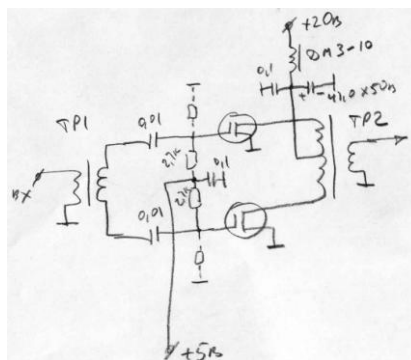 +20в
ДМ3-10
0,1
+ 47,0 x 50в
ТР1
0,01
ТР2
2,7к
0,1
вх
2,7к
0,01
+5в